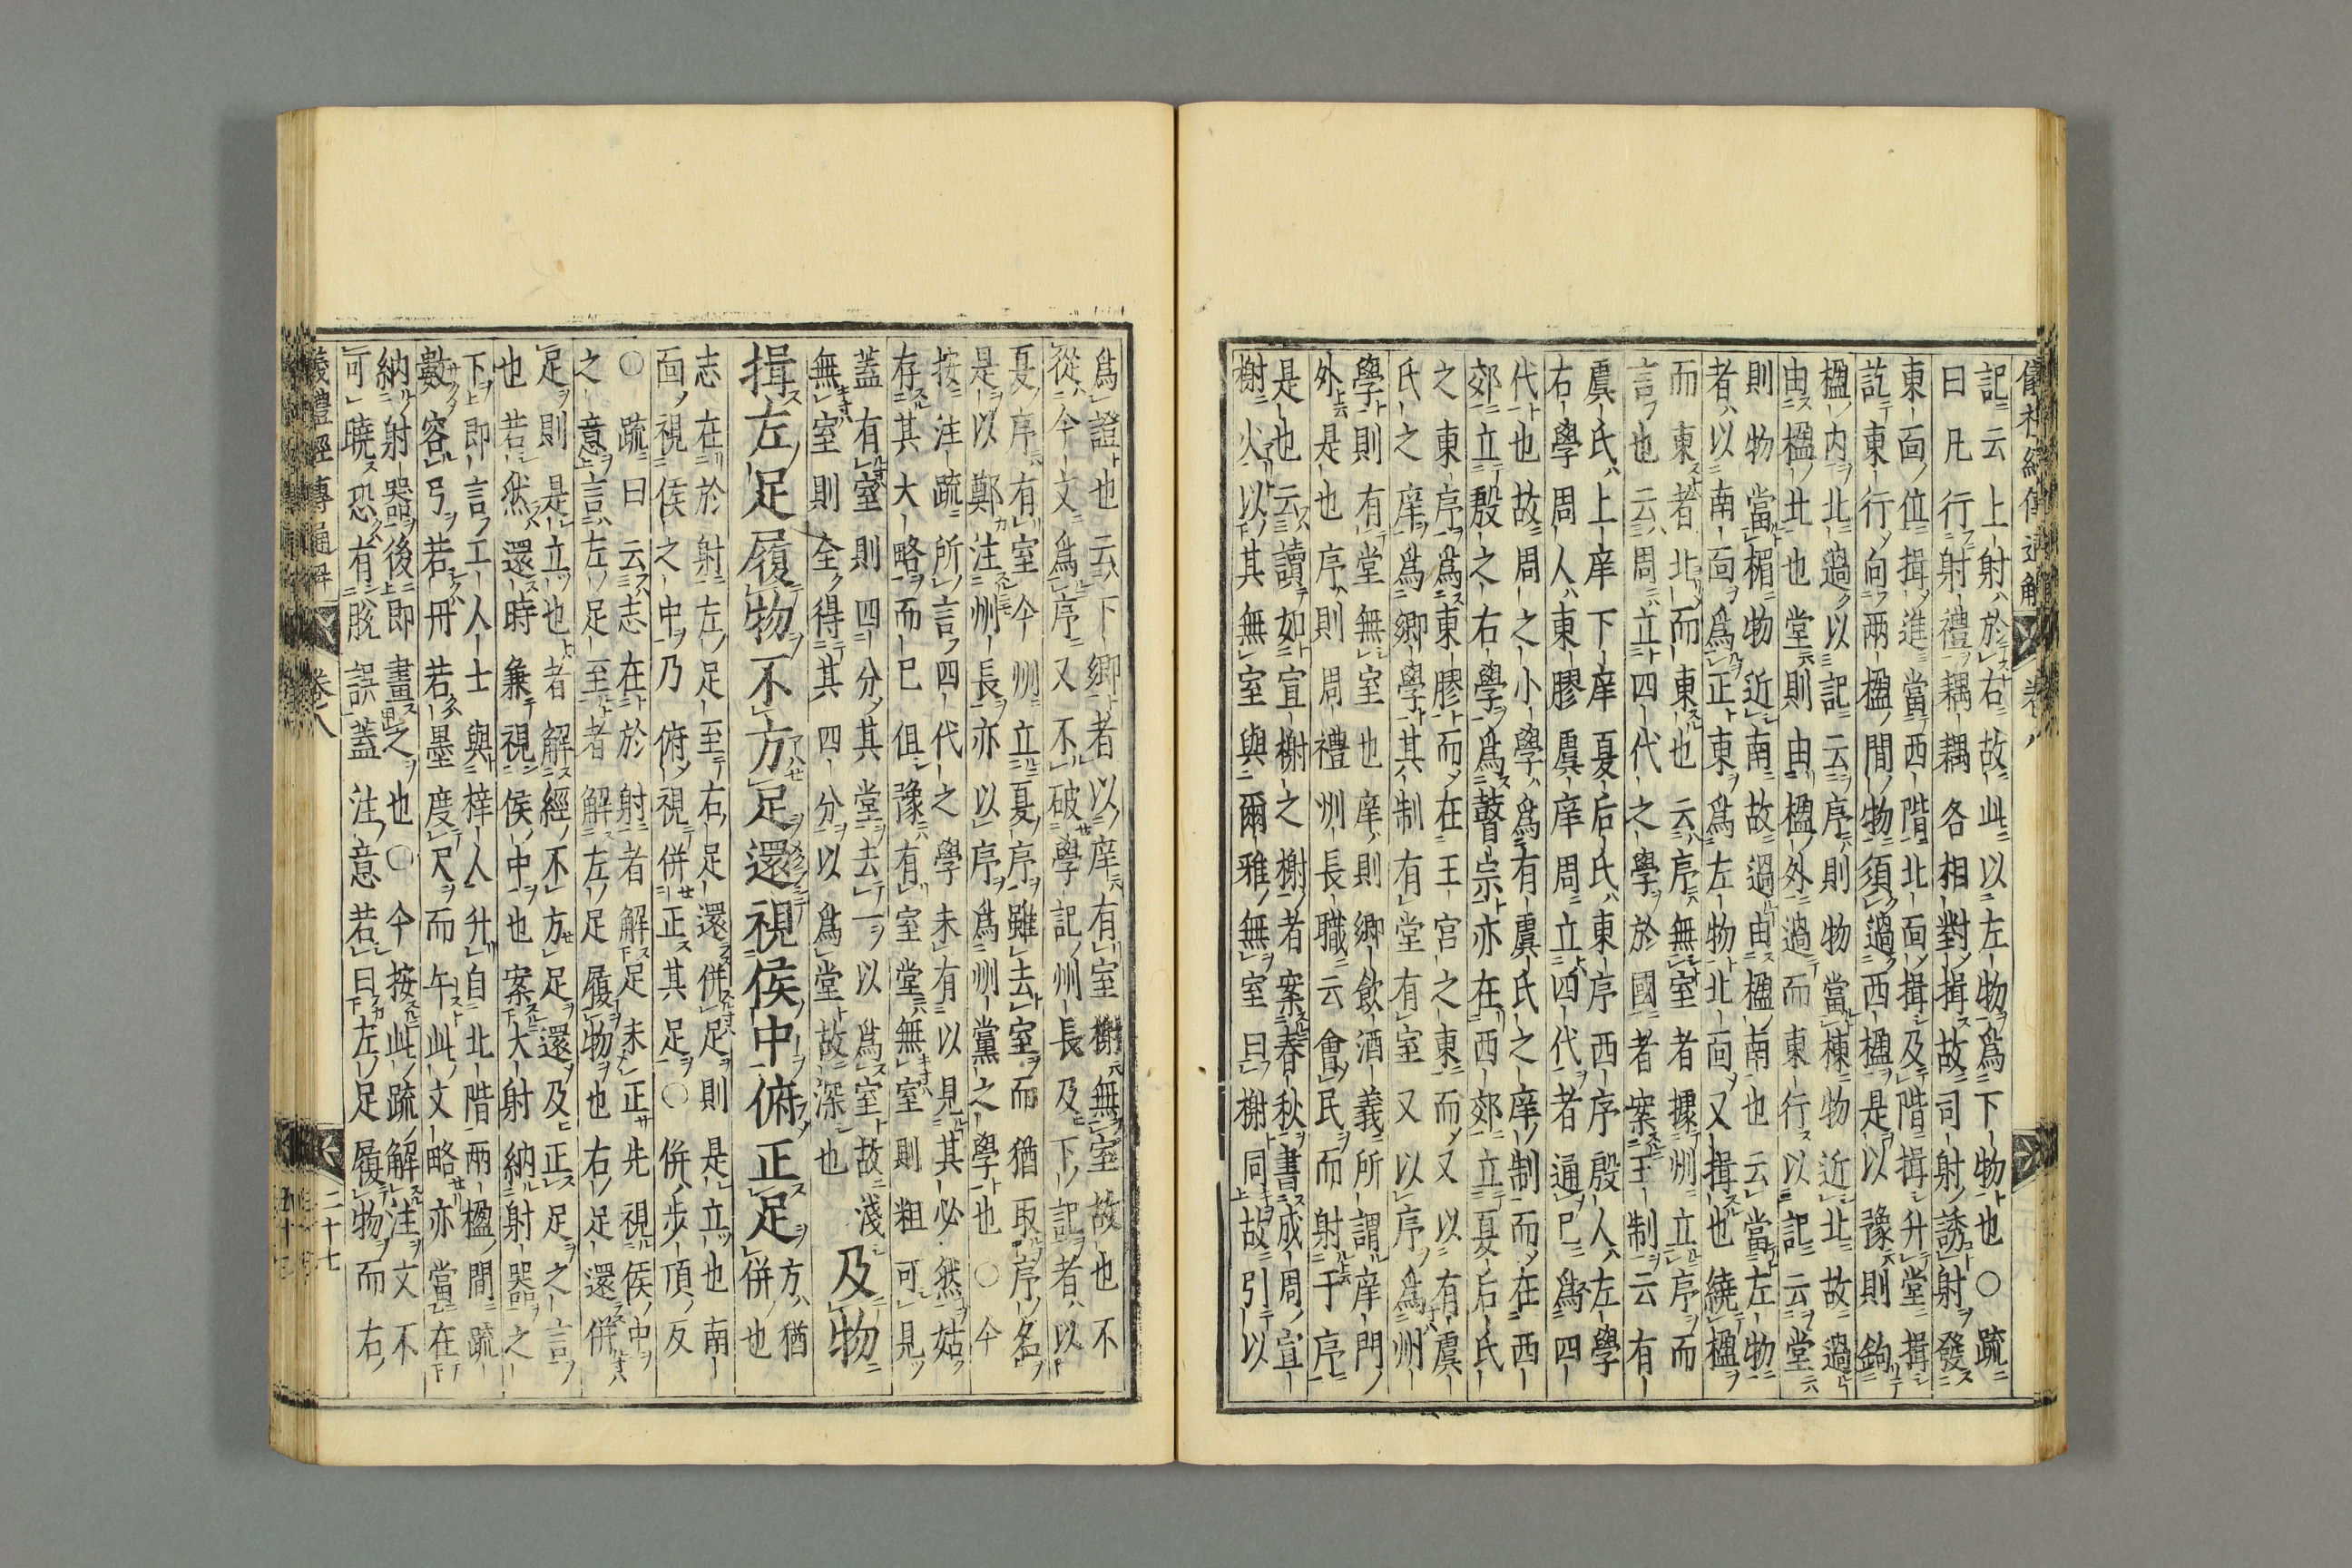 記云上射於右故此以左物爲下物也○疏
曰凡行射禮耦耦各相對揖故司射誘射發
東面位揖進當西階北面揖及階揖升堂揖
訖東行向兩楹間物須過西楹是以豫則鉤
楹内北過以記云序則物當棟物近北故過
由楹北也堂則由楹外過而東行以記云堂
則物當楣物近南故過由楹南也云當左物
者以南面爲正東爲左物北面又揖也繞楹
而東者北而東也云序無室者據州立序而
言也云周立四代之學於國者案王制云有
虞氏上庠下庠夏后氏東序西序殷人左學
右學周人東膠虞庠周立四代者通已爲四
代也故周之小學爲有虞氏之庠制而在西
郊立殷之右學爲瞽宗亦在西郊立夏后氏
之東序爲東膠而在王宮之東而又以有虞
氏之庠爲鄉學其制有堂有室又以序爲州
學則有堂無室也庠則鄉飲酒義所謂庠門
外是也序則周禮州長職云會民而射于序
是也云讀如宣榭之榭者案春秋書成周宣
榭火以其無室與爾雅無室曰榭同故引以
爲證也云下鄉者以庠有室榭無室故也不
從今文爲序又不破學記州長及下記者以
夏序有室今州立夏序雖去室而猶取序名
是以鄭注州長亦以序爲州黨之學也○今
按注疏所言四代之學未有以見其必然姑
存其大略而已但豫有室堂無室則粗可見
蓋有室則四分其堂去一以爲室故淺
無室則全得其四分以爲堂故深也
及物
揖左足履物不方足還視侯中俯正足
方猶
併也
志在於射左足至右足還併足則是立也南
面視侯之中乃俯視併正其足○併步頂反
○疏曰云志在於射者解足未正先視侯中
之意言左足至者解左足履物也右足還併
足則是立也者解經不方足還及正足之言
也若然還時兼視侯中也案大射納射器之
下即言工人士與梓人升自北階兩楹間疏
數容弓若丹若墨度尺而午此文略亦當在
納射器後即畫之也○今按此疏解注文不
可曉恐有脫誤蓋注意若曰左足履物而右
儀禮經傳通解 卷八 二十七